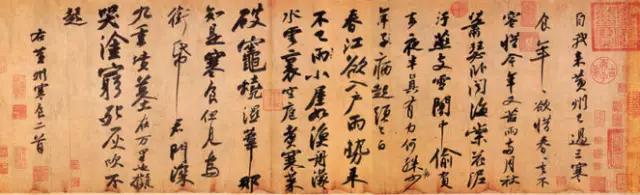 自我來黃州已過三寒
食年〻欲惜春春去不
容惜今年又苦雨兩月秋
蕭瑟卧聞海棠花泥
汙燕支雪闇中偷負
去夜半真有力何殊少
年子病起須已白
春江欲入户雨勢來
不已雨小屋如漁舟濛〻
水雲裏空庖煮寒菜
破竈燒濕葦那
知是寒食但見烏
銜帋君門深
九重墳墓在万里也擬
哭塗窮死灰吹不
起
右黃州寒食二首